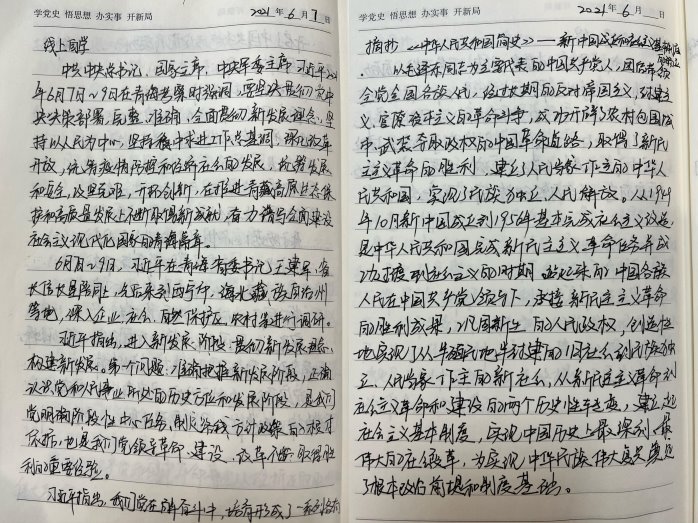 学党史 悟思想 办实事 开新局
2021年6月7日
线上自学
中共中央总书记、国家主席、中央军委主席习近平2021
年6月7日~9日在青海考察时强调,要坚决贯彻党中
央决策部署,完整、准确、全面贯彻新发展理念,坚
持以人民为中心,坚持稳中求进工作总基调,深化改革
开放,统筹疫情防控和经济社会的发展,统筹发展
和安全,攻坚克难,开拓创新,在推进青藏高原生态保
护和高质量发展上不断取得新成就,奋力谱写全面建设
社会主义现代化国家的青海篇章。
6月7日~9日,习近平在青海省委书记王建军、省
长信长星陪同下,先后来到西宁、海北藏族自治州
等地,深入企业、社区、自然保护区、农村等进行调研。
习近平指出,进入新发展阶段、贯彻新发展理念、
构建新发展 第一个问题:准确把握新发展阶段,正确
认识党和人民事业所处的历史方位和发展阶段,是我们
党明确阶段性中心任务,制定路线方针政策的根本
依据,也是我们党领导革命、建设、改革不断取得胜
利的重要经验。
习近平指出,我们党在 奋斗中,
学党史 悟思想 办实事 开新局
2021年6月 日
摘抄《中华人民共和国简史》——新中国成立和社会主义基本
以毛泽东同志为主要代表的中国共产党人,团结带领
全党全国各族人民,经过长期的反对帝国主义、封建主
义、官僚资本主义的革命斗争,成功开辟了农村包围城
市、武装夺取政权的中国革命道路,取得了新民
主主义革命的胜利,建立了人民当家作主的中华人
民共和国,实现了民族独立、人民解放。从1949
年10月新中国成立到1956年基本完成社会主义改造,
是中华人民共和国完成新民主主义革命任务并成
功过渡到社会主义的时期。 的中国各族
人民在中国共产党领导下,承接新民主主义革命
的胜利成果,巩固新生的人民政权,创造性
地实现了从半殖民地半封建的旧社会到民族独
立、人民当家作主的新社会,从新民主主义革命到
社会主义革命和建设的两个历史性转变,建立起
社会主义基本制度,实现中国历史上最深刻最
伟大的社会变革,为实现中华民族伟大复兴奠定
了根本政治前提和制度基础。